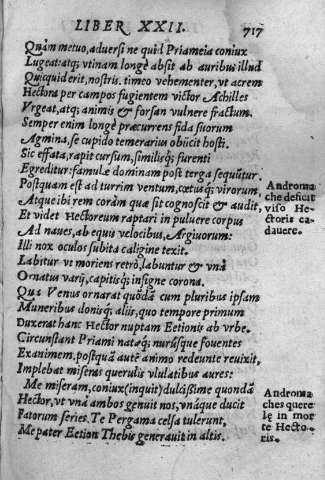 LIBER XXII. 717
Quàm metuo, aduersi ne quid Priameia coniux
Lugeat: atq; vtinam longè absit ab auribus illud
Quicquid erit, nostris. timeo vehementer, vt acrem
Hectora per campos fugientem victor Achilles
Vrgeat, atq; animis & forsan vulnere fractum.
Semper enim longè præcurrens fida suorum
Agmina, se cupido temerarius obiicit hosti.
Sic effata, rapit cursum, similisq; furenti
Egreditur: famulæ dominam post terga sequũtur.
Postquam est ad turrim ventum, cœtusq; virorum,
Atque ibi rem corã quæ sit cognoscit & audit,
Et videt Hectoreum raptari in puluere corpus
Ad naues, ab equis velocibus, Argiuorum:
Illi nox oculos subita caligine texit.
Labitur vt moriens retrò, labuntur & vnà
Ornatus varij, capitisq; insigne corona.
Qua Venus ornarat quõdã cum pluribus ipsam
Muneribus donisq; aliis, quo tempore primum
Duxerat hanc Hector nuptam Eetionis ab vrbe.
Circunstant Priami natæq; nurúsque fouentes
Exanimem, postquã autẽ animo redeunte reuixit,
Implebat miseris querulis vlulatibus aures:
Me miseram, coniux (inquit) dulcissime quondã
Hector, vt vnâ ambos genuit nos, vnáque ducit
Fatorum series. Te Pergama celsa tulerunt,
Me pater Eetion Thebis generauit in altis.
Androma
che deficit
viso He-
ctoris ca-
dauere.
Androma
ches quere
lę in mor
te Hecto-
ris.